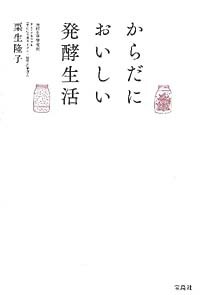 からだに
おいしい
発酵生活
栗生隆子
宝島社